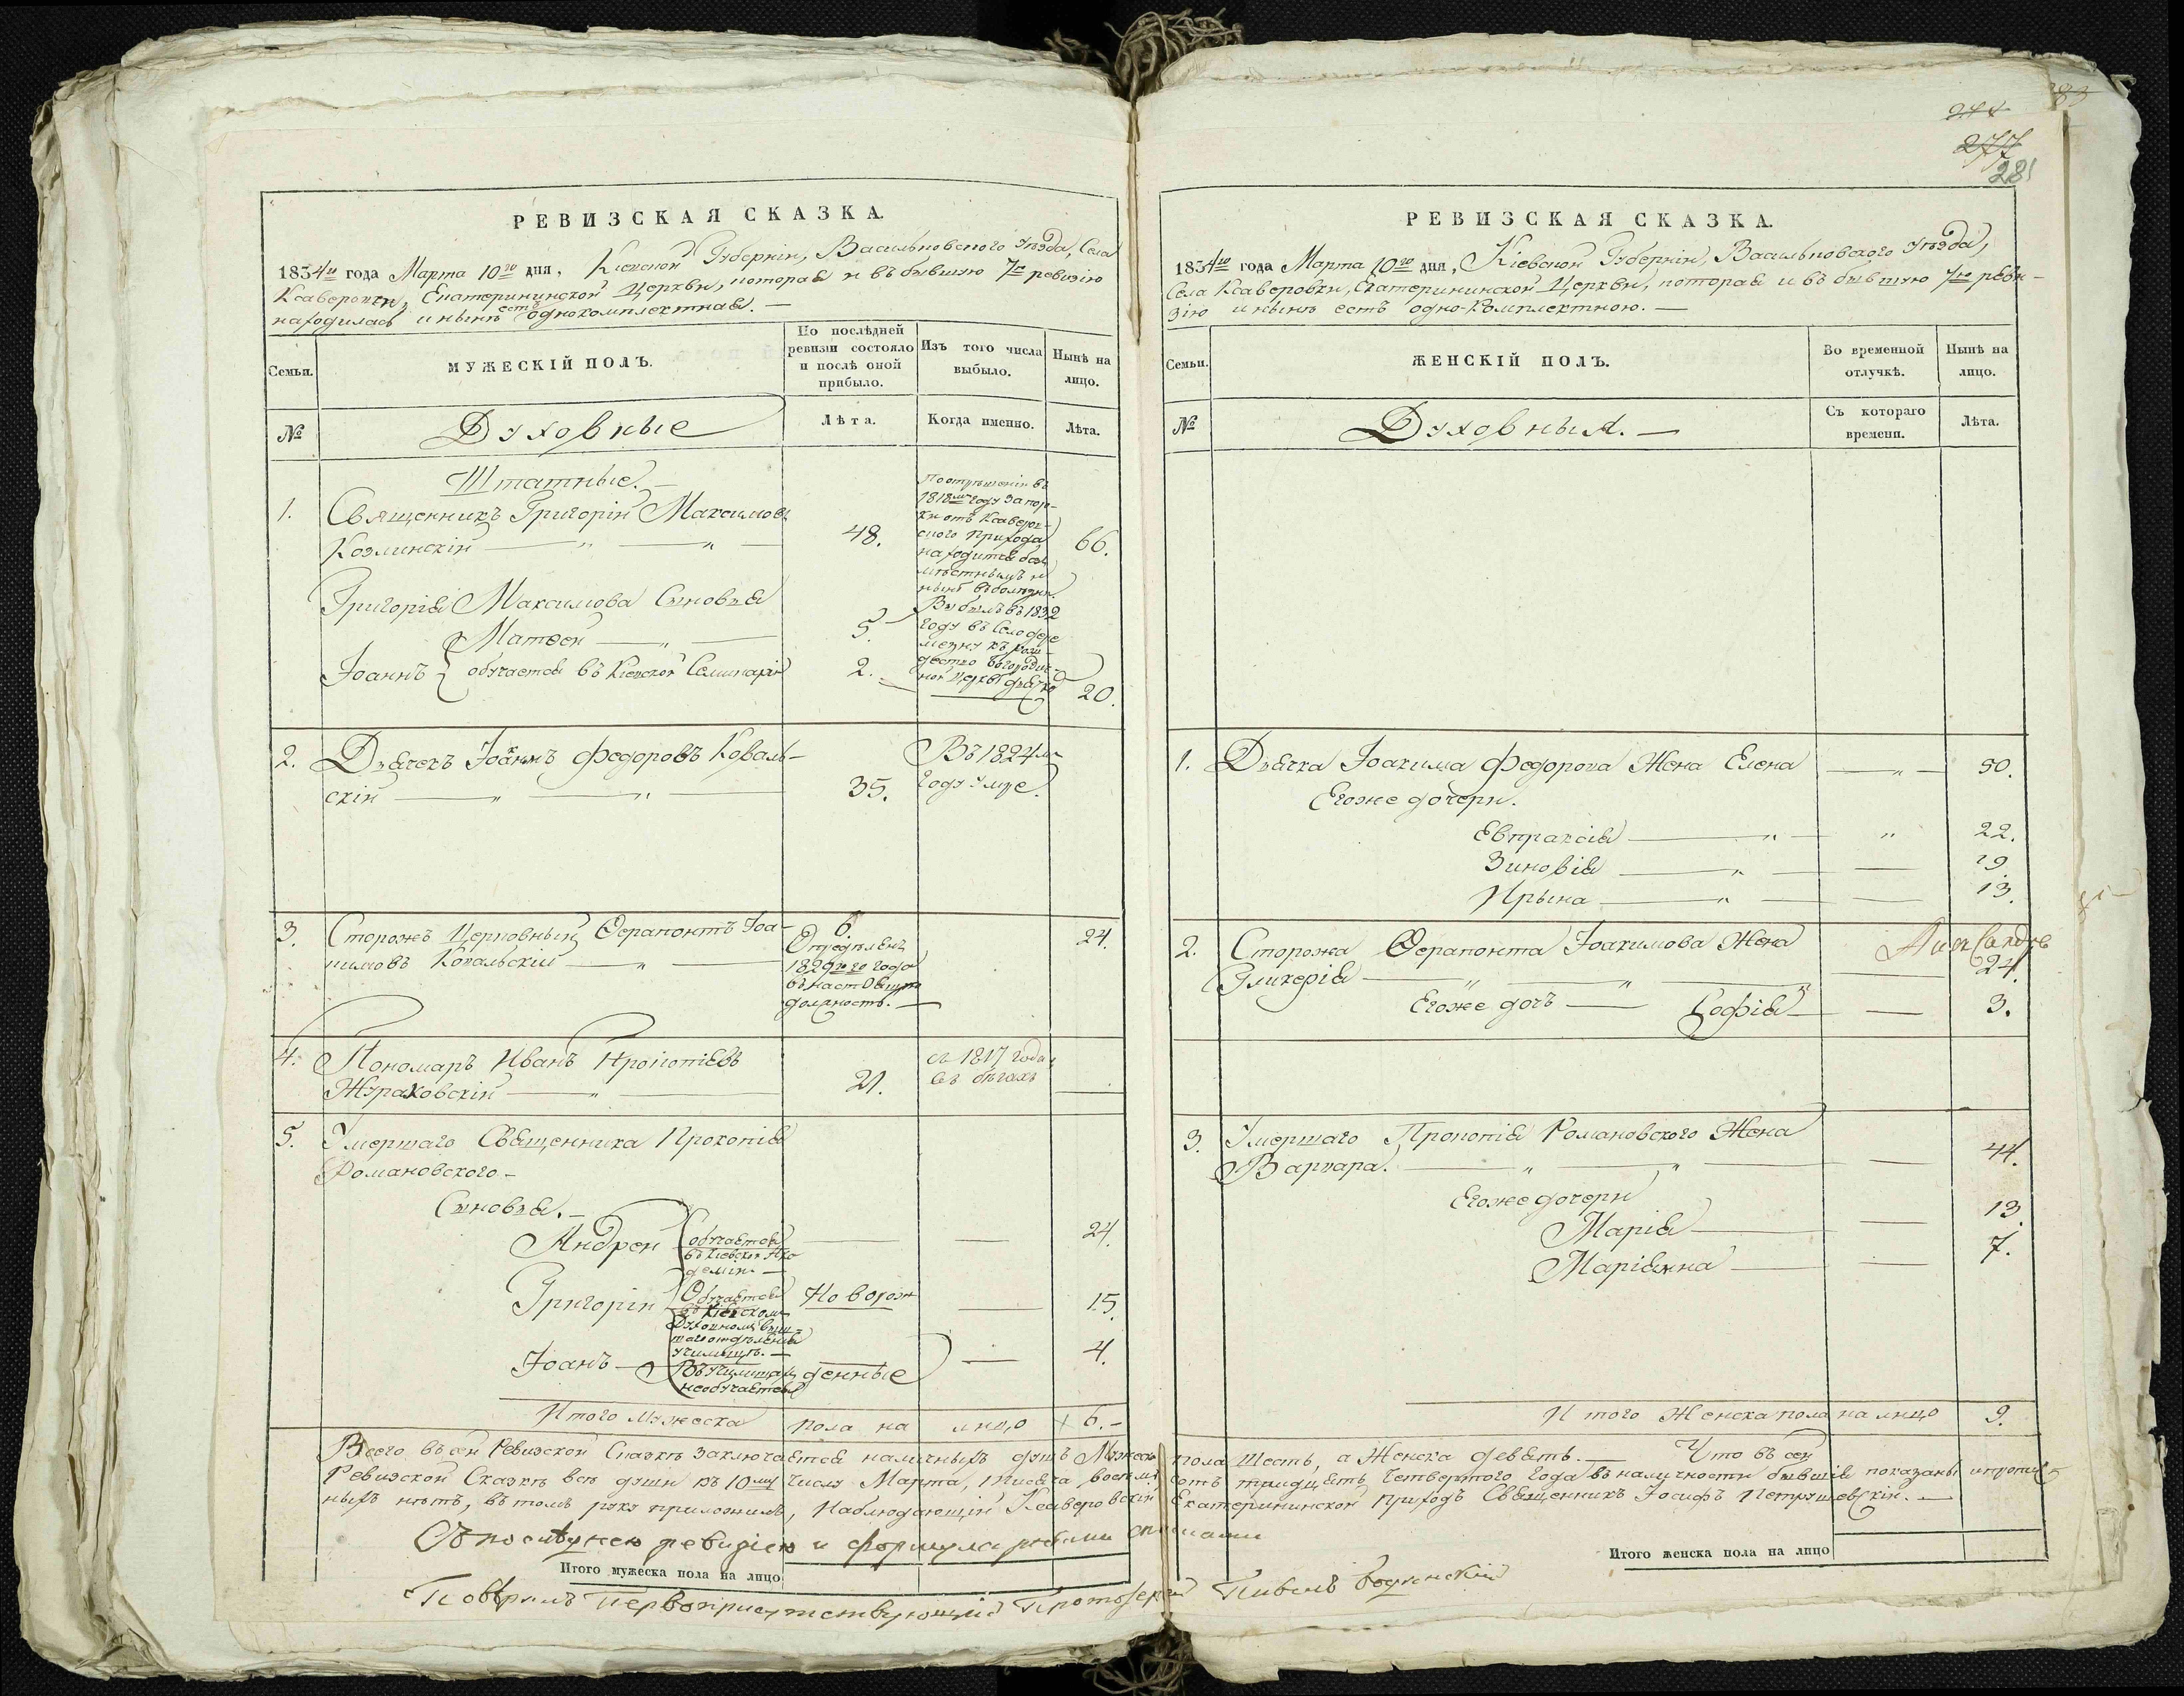 РЕВИЗСКАЯ СКАЗКА.
1834го года Марта 10го дня, Кіевской Губерніи, Васильковского уѣзда, Села
Ксаверовки, Екатерининской Церкви, которая и въ бывшую 7ю ревизію
находилась и нынѣ есть однокомплектная. —
Семьи.
МУЖЕСКІЙ ПОЛЪ.
По послѣдней
ревизіи состояло
и послѣ оной
прибыло.
Изъ того числа
выбыло.
Нынѣ на
лицо.
№
Духовные
Лѣта.
Когда именно.
Лѣта.
Штатные. —
1. Священникъ Григорій Максимовъ
Козлинскій — " — " — 48. 66.
По отрѣшеніи въ
1818мъ году за
отъ Ксаверов-
ского прихода
находится без
мѣстнымъ и
нынѣ
Григорія Максимова Сыновья
Матѳей — " — 5.
Выбылъ въ 1832
году въ Село
къ рож-
дество Богородич-
ной Церкви
Іоаннъ { обучается въ Кіевской Семинаріи 2. 20.
2. Дьячекъ Іоакимъ Федоровъ Коваль-
скій — " — " — 35.
Въ 1824мъ
году умре.
3. Сторожъ Церковный Ѳерапонтъ Іоа-
кимовъ Ковальскій — " — 6. 24.
Опредѣленъ
1829го года
въ настоящую
должность. —
4. Пономаръ Иванъ Прокопіевъ
Жураковскій — " — 21.
съ 1817 года
въ бѣгахъ
5. Умершаго Священника Прокопія
Романовского —
Сыновья. —
Андрей { обучается
въ Кіевской Ака
деміи — — — 24.
Григорій { Обучается
въ Кіевскомъ
Духовномъ
отдѣленія
училищѣ. — Новорож — 15.
Іоанъ — { Въ училищахъ
необучается денные — 4.
Итого мужеска пола на лицо 6. —
РЕВИЗСКАЯ СКАЗКА.
244
277
281
83
1834го года Марта 10го дня, Кіевской Губерніи, Васильковского уѣзда,
Села Ксаверовки, Екатерининской Церкви, которая и въ бывшую 7ю реви-
зію и нынѣ есть одно-комплектною. —
Семьи.
ЖЕНСКІЙ ПОЛЪ.
Во временной
отлучкѣ.
Нынѣ на
лицо.
№
Духовныя. —
Съ котораго
времени.
Лѣта.
1. Дьячка Іоакима Федорова Жена Елена — " — 50.
Егоже дочери.
Евпраксія — " — " 22.
Зиновія — " — — 19.
Ирына — " — — 13.
2. Сторожа Ѳерапонта Іоакимова Жена
Гликерія — " — " — " — 24.
Егоже дочъ — Софія — — 3.
3. Умершаго Прокопія Романовского Жена
Варвара. — " — " — — 44.
Егоже дочери
Марія — — 13.
Маріянна — — 7.
Итого Женска пола на лицо 9.
Всего въ сей Ревизской Сказкѣ заключается наличныхъ душъ Мужеска пола шесть, а Женска девять. — Что въ сей
Ревизской Сказкѣ всѣ души къ 10му числу Марта, тысяча восемь сотъ тридцать четвертого года въ наличности бывшія показаны и
ныхъ нѣтъ, въ томъ руку приложилъ, Наблюдающій Ксаверовскій Екатерининской приходъ Священникъ Іосифъ Петрушевскій. —
Съ ревизіею и формулярными списками
Итого мужеска пола на лицо
Итого женска пола на лицо
Повѣрилъ Первоприсутствующій Протоіерей